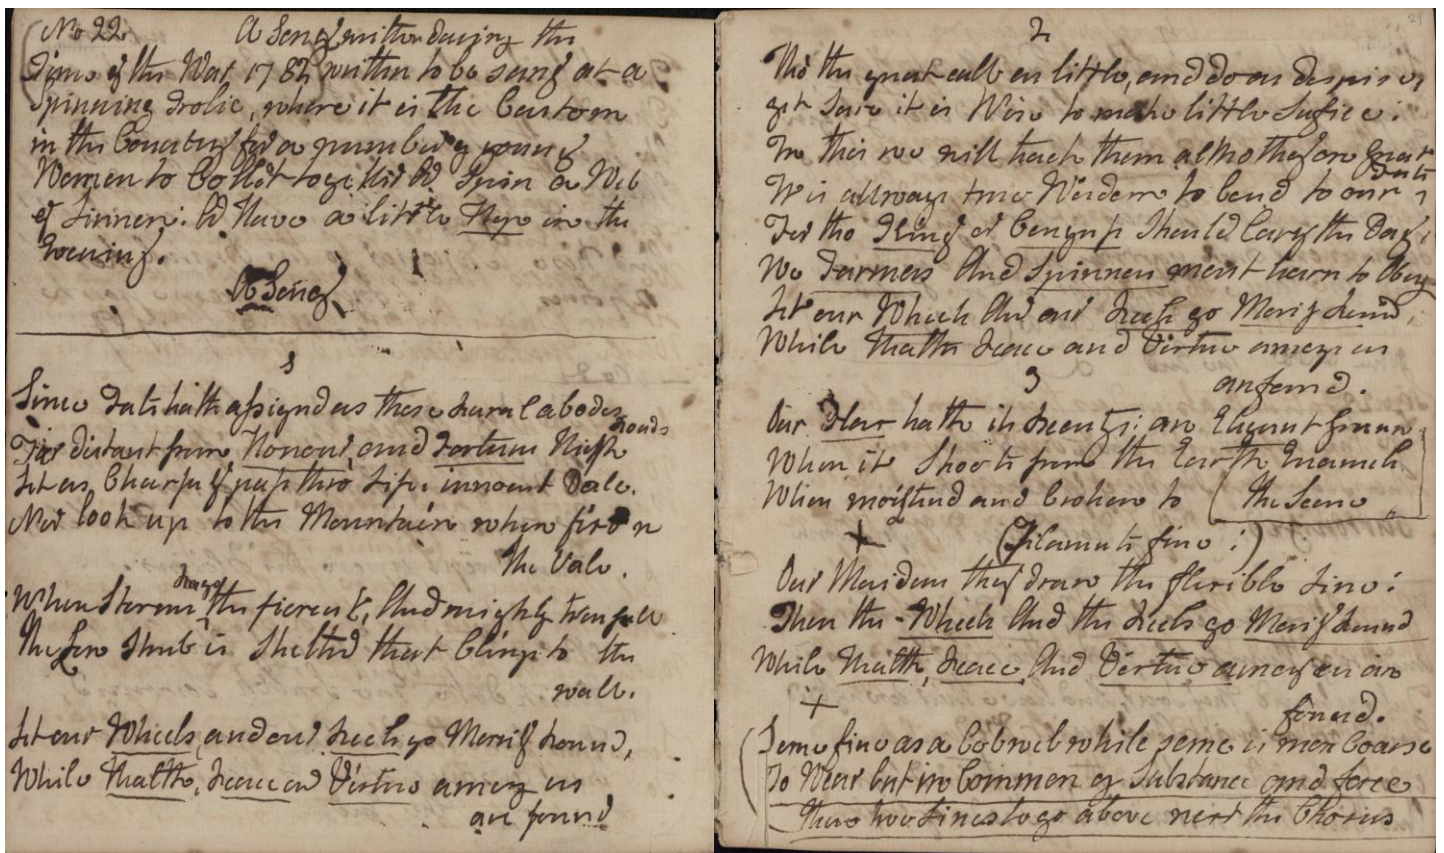 No 22 A Song written during the
Time of the War 1782 written to be sung at a
Spinning Frolic, where it is the Custom
in the Country for a number of young
Women to Collect together & Spin a Web
of Linnen: & Have a little Hop in the
Evening.
A Song
1
Since Fate hath assignd us these Rural abodes
Far distant from Honour, and Fortunes High Roads
Let us Chearfully pass thro Lifes innocent Dale.
Nor look up to the Mountain when fixd on
The Vale.
When Storms rage the fiercest, And mighty trees fall
The Low Shrub is Shelterd that Clings to the
wall.
Let our Wheels, and our Reels go Merrily Round,
While Health, Peace and Virtue among us
are found
2
Tho the great call us little, and do us despise,
yet Sure it is Wise to make little Sufice:
In this we will teach them altho they are Great
It is allways true Wisdom to bend to our Fate
For tho King or Congress Should Carry the Day
We Farmers And Spinners must learn to Obey
Let our Wheels And our Reels go Merily Round,
While Health Peace and Virtue among us
are found.
3
Our Flax hath its Beauty: an Elegant Green
When it Shoots from the Earth Enamels
The Scene
When moistend and broken to
(Filaments fine:)
+
Our Maidens they draw the flexible Line:
Then the Wheels And the Reels go Merily Round
While Health, Peace, And Virtue among us are
found.
+
Some fine as a Cobweb while some is more Coarse
To Wear but in Common of Substance and force
These two Lines to go above next the Chorus